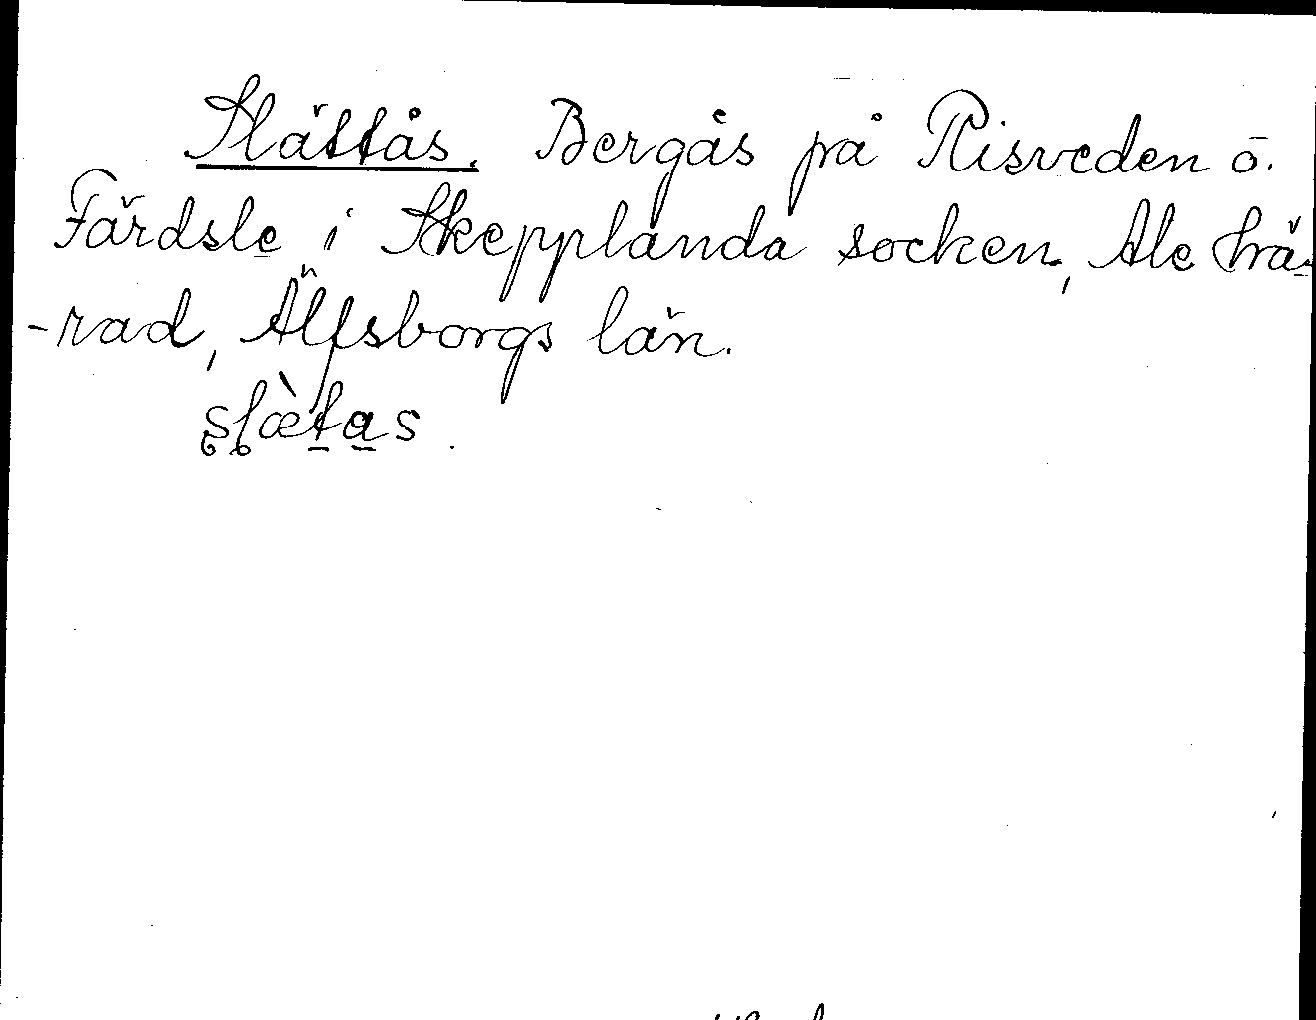 Slättås. Bergås på Risveden ö.
Färdsle i Skepplanda socken, Ale hä-
-rad, Älfsborgs län.
slætas.